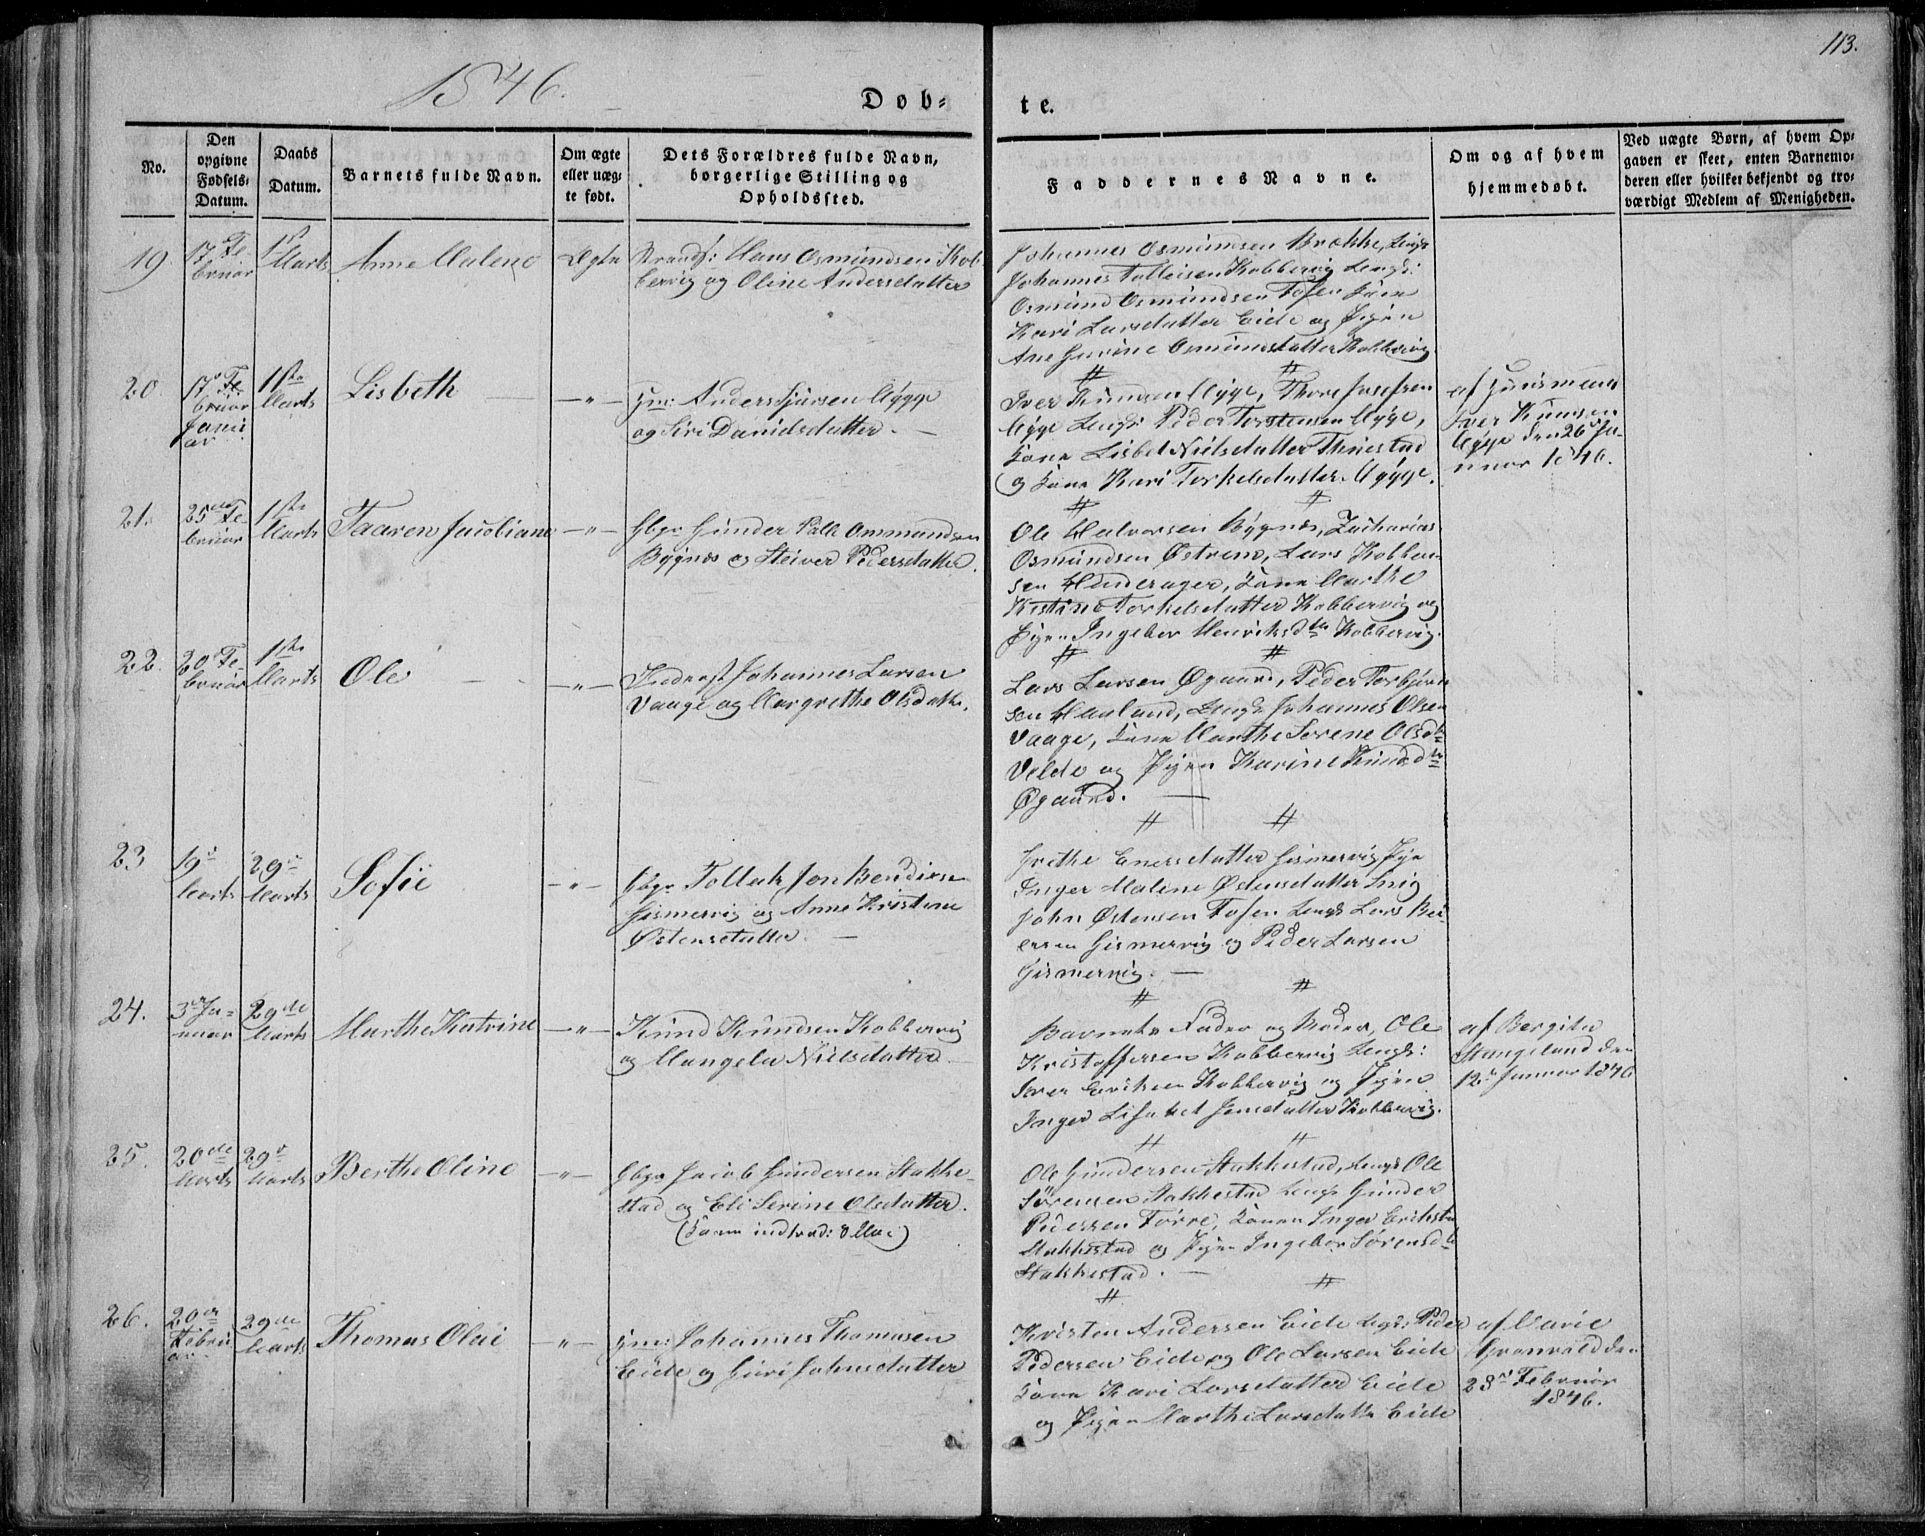 1846.
113.
Døb-
te.
No.
Den opgivne Fødsels-Datum.
Daabs Datum.
Barnets fulde Navn.
Om ægte eller uægte født.
Dets Forældres fulde Navn, borgerlige Stilling og Opholdssted.
Faddernes Navne.
Om og af hvem hjemmedøbt.
Ved uægte Børn, af hvem Opgaven er skeet, enten Barnemoderen eller hvilket bekjendt og troværdigt Medlem af Menigheden.
19
17de Februar
1st Marts
Anne Malene
Ægte
Strands: Hans Osmundsen Kob
bervig og Oline Andersdatter
Johannes Osmundsen Brække, Ungk
Johannes Tolleisen Kobbervig Ungk:
Osmund Osmundsen Fosen Kone
Kari Larsdatter Eide og Pigen
Ane Gurine Osmundsdatter Kobbervig
20.
17de Februar
Januar
1ste Marts
Lisbeth
-"-
Hm: Anders Sjursen Mygge
og Siri Danielsdatter. —
Iver Knudsen Mygge, Thore Josefsen
Mygge Ungk: Peder Torstensen Mygge,
Kone Lisbet Nielsdatter Thuestad
og Kone Kari Torkelsdatter Mygge.
af Huusmand
Iver Knudsen
Mygge den 26de Ja-
nuar 1846.
21.
25de Februar
1ste Marts
Taaren Jacobiane
-"-
Gbgr Gunder Falk Ommundsen
Bygnes og Steiver Pedersdatter.
Ole Halvorsen Bygnes, Zacharias
Osmundsen Østrem, Lars Kobben-
sen Hinderager, Kone Marthe
Kistine Torkelsdatter Kobbervig og
Pigen Ingebor Henriksdtr Kobbervig.
22.
20de Februar
1ste Marts
Ole
-"-
Inderst Johannes Larsen
Vaage og Margrethe Olsdatter.
Lars Larsen Øgaard, Peder Torbjørn
sen Hauland, Ungk Johannes Olsen
Vaage, Kone Marthe Serene Olsdtr
Velde og Pigen Karine Knudsdtr
Øgaard. —
23
19de Marts
29de Marts
Sofie
-"-
Gbgr Tollak Jon Bendixsen
Gismervig og Anne Kristine
Østensdatter. —
Grethe Enersdatter Gismervig Pige
Inger Malene Østensdatter
John Østensen Fosen Ungk Lars
Gismervig og Peder Larsen
Gismervig. —
24.
3de Januar
29de Marts
Marthe Katrine
-"-
Knud Knudsen Kobbervig
og Mangela Nielsdatter
Barnets Fader og Moder, Ole
Kristoffersen Kobbervig Ungk:
Iver Eriksen Kobbervig og Pigen
Inger Lisabet Jensdatter Kobbervig.
af Bergitte
Stangeland den
12te Januar 1846
25.
20de Marts
29de Marts
Berthe Oline
-"-
Gbgr Jacob Gundersen Stakke-
stad og Eli Serine Olsdatter.
(Kone indtrad: 8 Mai)
Ole Gundersen Stakkestad, Ungk Ole
Sørensen Stakkestad Ungk Gunder
Pedersen Førre, Konen Inger Eriksdtr
Stakkestad og Pigen Ingebor Sørensdtr
Stakkestad. —
26.
20de Februar
29de Marts
Thomas Olai
-"-
Hm: Johannes Thomasen
Eide og Guri Johnsdatter
Kristen Andersen Eide Ungk: Peder
Pedersen Eide og Ole Larsen Eide
Kone Kari Larsdatter Eide
og Pigen Marthe Larsdatter Eide
af Marie
Grønvold den
28de Februar
1846.